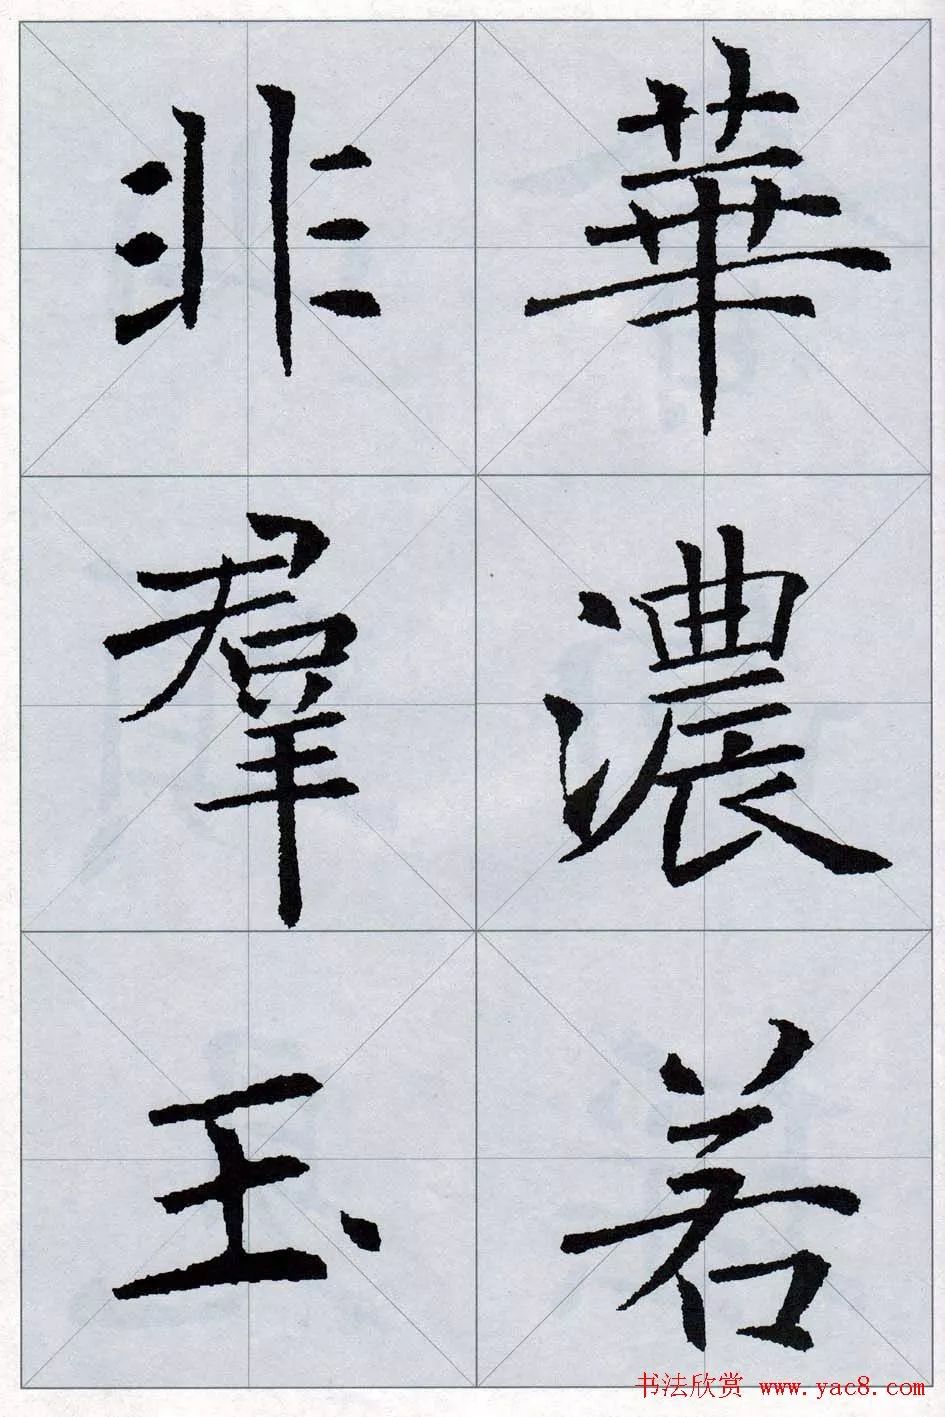 華濃若
非羣玉
书法欣赏 www.yac8.com